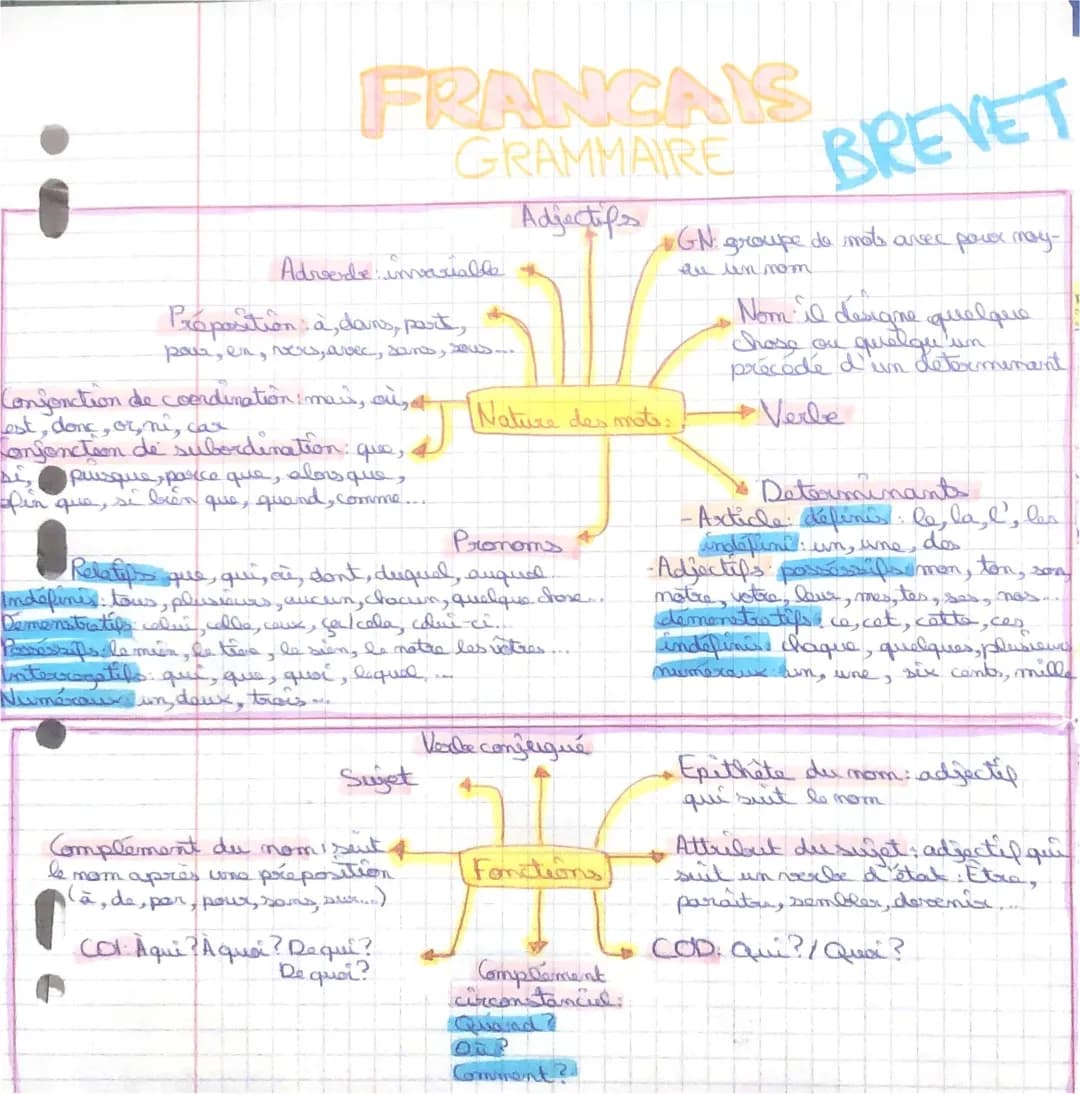 FRANCAIS
GRAMMAIRE
BREVET
Adjectifs
GN: groupe de mots avec pour noy-
au un nom
Adverbe: invariable
Préposition: à, dans, part,
pour, en, vers, avec, sans, sous...
Nom: il désigne quelque
chose ou quelqu'un
précédé d'un déterminant
Conjonction de coordination: mais, où,
est, donc, or, ni, car
Conjonction de subordination: que,
si, puisque, parce que, alors que,
afin que, si bien que, quand, comme...
Nature des mots:
Verbe
Déterminants
- Article: définis: le, la, l', les
indéfini: un, une, des
- Adjectifs: possessifs: mon, ton, son,
notre, votre, leur, mes, tes, ses, nos...
démonstratifs: ce, cet, cette, ces
indéfinis: chaque, quelques, plusieurs
numéraux: un, une, six cents, mille
Pronoms
Relatifs que, qui, où, dont, duquel, auquel
Indéfinis: tous, plusieurs, aucun, chacun, quelque chose...
Démonstratifs: celui, celle, ceux, ça/cela, celui-ci...
Possessifs: le mien, le tien, le sien, le notre les vôtres...
Interrogatifs: qui, que, quoi, lequel, ...
Numéraux: un, deux, trois...
Verbe conjugué
Sujet
Epithète du nom: adjectif
qui suit le nom
Complément du nom: suit
le nom après une préposition
(à, de, par, pour, sans, sur...)
Fonctions
Attribut du sujet: adjectif qui
suit un verbe d'état: Être,
paraître, sembler, devenir...
COI: À qui? À quoi? De qui?
De quoi?
COD: Qui?/Quoi?
Complément
circonstanciel:
Quand?
Où?
Comment?